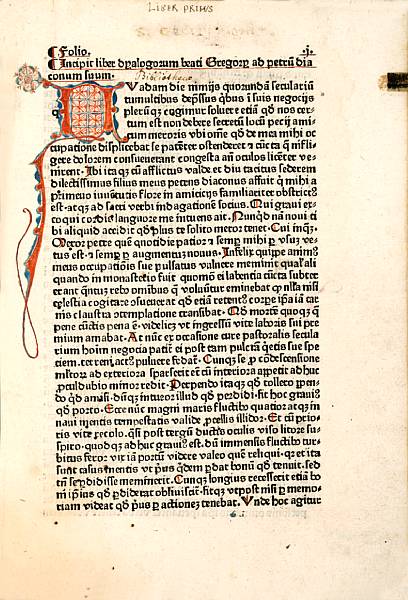 LIBER PRIMUS
Folio. .j.
Incipit liber dyalogorum beati Gregorij ad petrū dia
conum suum. Bibliothecae
Quadam die nimijs quorundā seculariū
tumultibus dep̄ssus q̄bus ī suis negocijs
plerūq̄ cogimur soluere etiā qd̓ nos cer-
tum est non debere secretū locū pecij amicū
meroris vbi om̄e qd̓ de mea mihi oc
cupatione displicebat se patēter ostenderet ⁊ cūcta q̄ infli-
gere dolorem consueuerant congesta añ oculos licēter ve-
nirent. Ibi itaq̨ cū afflictus valde et diu tacitus sederem
dilectissimus filius meus petrus diaconus affuit q̓ mihi a
primeuo iuuētutis flore in amicicijs familiariter obstrict̓
est· atq̨ ad sacri verbi indagationem socius. Qui graui ex-
coqui cordis languore me intuens ait. Nunqd̓ nā noui ti
bi aliquid accidit qd̓ pl̓us te solito meror tenet. Cui inq̄z.
Meror petre quē quotidie patior ⁊ semp̱ mihi p̱ vsuȝ ve-
tus est· ⁊ semp̱ p̱ augmentuȝ nouus. Infelix quippe anim̄
meus occupatiōis sue pulsatus vulnere meminit qual̓ ali
quando in monasterio fuit quomō ei labentia cūcta subter
erant q̄ntuȝ rebȝ omībus q̄ voluūtur eminebat q̱ nulla nisi
celestia cogitare ↄsueuerat qd̓ etiā retent̓ corpe ip̄a iā car
nis claustra ↄtemplatione transibat. Qd̓ mortē quoq̨ q̄
pene cūctis pena ē· videlicȝ vt ingressū vite laboris sui pre
mium amabat. At nūc ex occasione cure pastoralis secula
rium hoim̄ negocia patit̓ et post tam pulcrā q̄etis sue spe
ciem· terreni act̓ puluere fedat̓. Cunq̨ se p̱ ↄdescensione
multoꝝ ad exteriora sparserit et cū interiora appetit ad huc
p̱culdubio minor redit. Perpendo itaq̨ qd̓ tollero p̱pen-
do qd̓ amisi. dūq̨ intueor illud qd̓ perdidi· fit hoc graui̓
qd̓ porto. Ecce nūc magni maris fluctibȝ quatior atq̨ in
naui mentis tempestatis valide p̱cellis illidor. Et cū prio-
ris vite recolo. q̄si post tergū ductis oculis viso litore su-
spiro· quodq̨ ad huc graui̓ est. dū immensis fluctibȝ tur-
bitus feror vix iā portū videre valeo quē reliqui· q̄ et ita
sunt casus mentis vt p̓us q̄dem p̱dat bonū qd̓ tenuit. sed
tn̄ se p̱didisse meminerit. Cunq̨ longius recesserit etiā bo
ni ip̄ius qd̓ p̱diderat obliuiscit̓. fitq̨ vt post nisi p̱ memo-
riam videat qd̓ p̓us p̱ actionez tenebat. Vnde hoc agitur